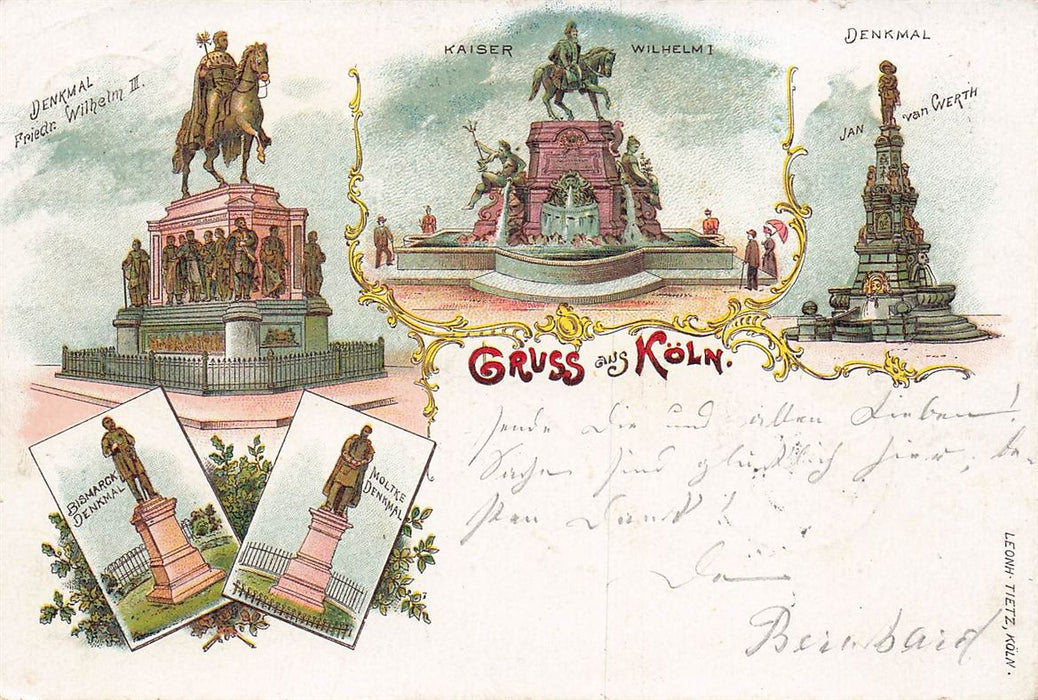 DENKMAL
Friedr. Wilhelm III.
KAISER WILHELM I
DENKMAL
JAN van WERTH
GRUSS aus KÖLN.
sende Dir und allen Lieben!
Sachen sind glücklich hier, be-
sten Dank!
Dein
Bernhard
BISMARCK
DENKMAL
MOLTKE
DENKMAL
LEONH. TIETZ, KÖLN.